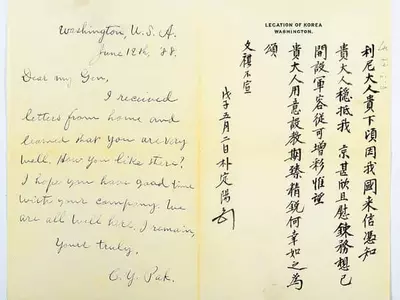 Washington, U.S.A.
June 12th, 88.
Dear my Gen,
I received
letters from home and
learned that you are very
well. How you like there?
I hope you have good time
with your company. We
are all well here. I remain,
Yours truly,
C. Y. Pak.
LEGATION OF KOREA
WASHINGTON.
利尼大人貴下頃因我國來信憑知
貴大人穩抵我 京甚欣且慰錬務想已
開設軍容從可增彩惟望
貴大人用意設敎期臻精銳何幸如之爲
頌
文祺不宣
戊子五月二日朴定陽